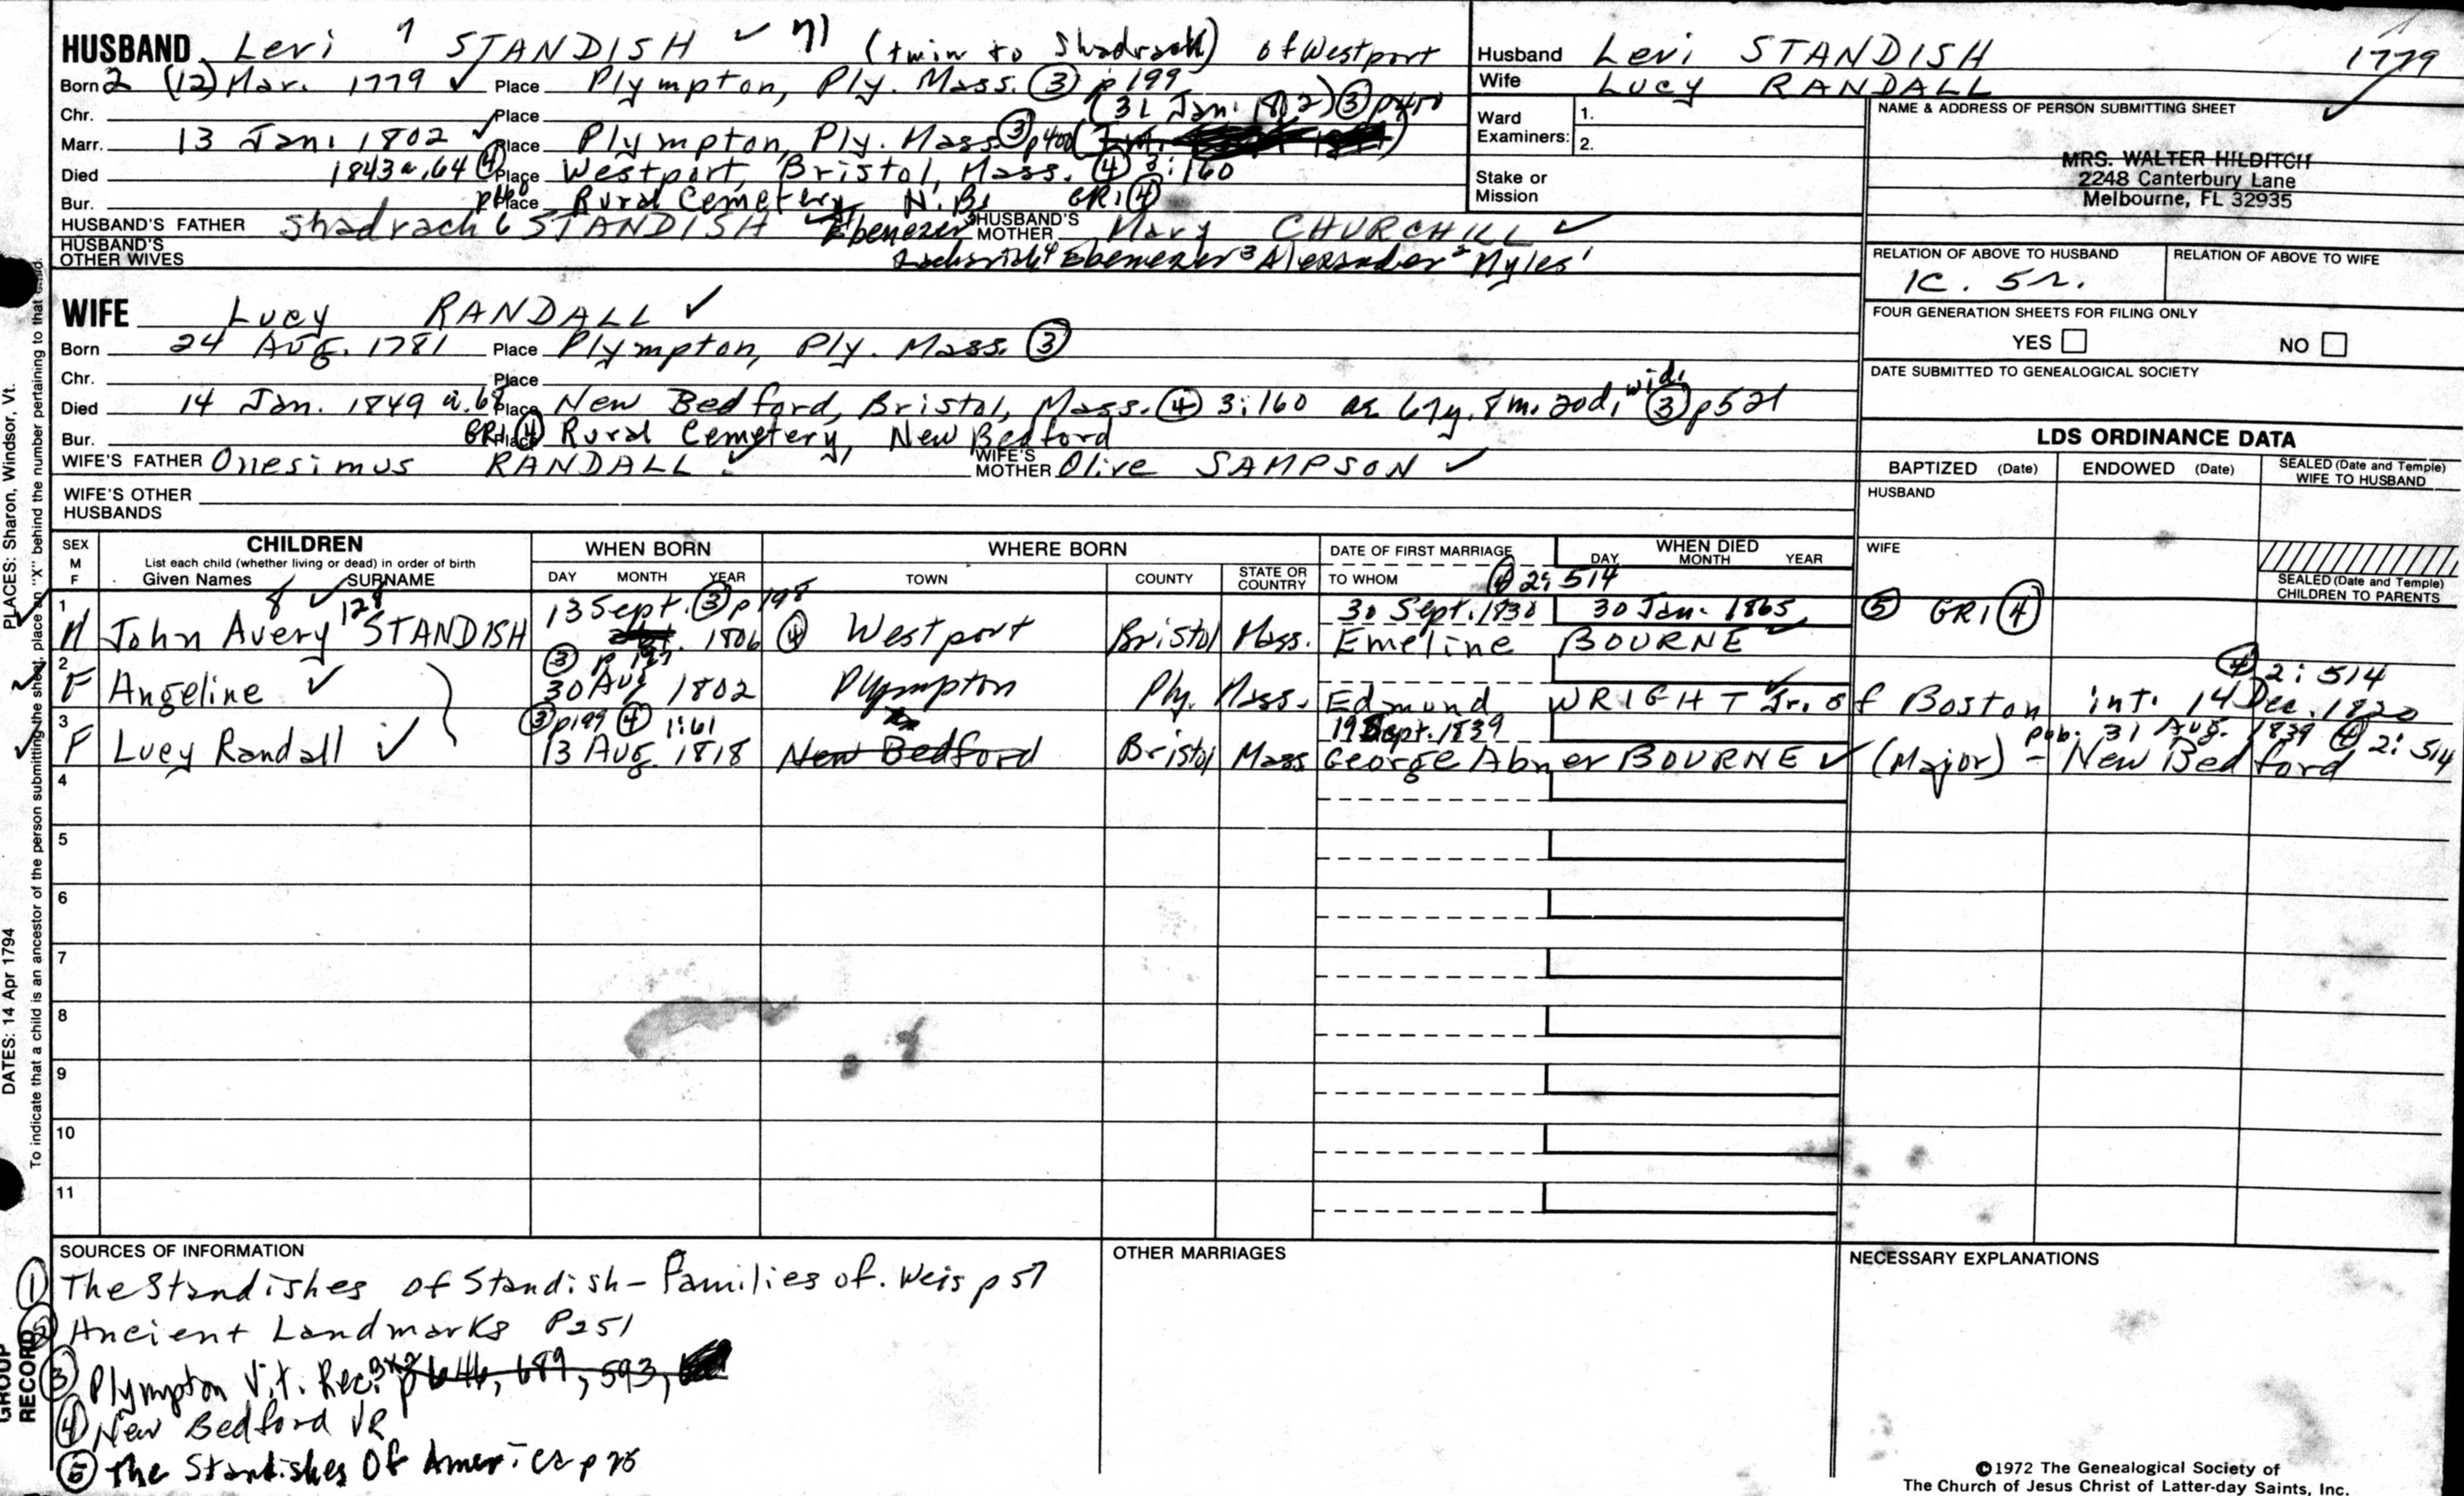 HUSBAND Levi 7 STANDISH ✓ 71 (twin to Shadrach) of Westport
Born 2 (12) Mar. 1779 ✓ Place Plympton, Ply. Mass. ③ p 199
Chr. Place (31 Jan. 1802) ③ p 400
Marr. 13 Jan. 1802 ✓ Place Plympton, Ply. Mass ③ p400
Died 1843 a. 64 ④ Place Westport, Bristol, Mass. ④ 3:160
Bur. Place Rural Cemetery N.B. GR1 ④
HUSBAND'S FATHER Shadrach 6 STANDISH Ebenezer 5 HUSBAND'S MOTHER Mary CHURCHILL ✓
HUSBAND'S OTHER WIVES Zachariah 4 Ebenezer 3 Alexander 2 Myles 1
WIFE Lucy RANDALL ✓
Born 24 Aug. 1781 Place Plympton, Ply. Mass. ③
Chr. Place
Died 14 Jan. 1849 a. 68 Place New Bedford, Bristol, Mass. ④ 3:160 ae 67y. 8m. 20d, wid. ③ p521
Bur. GR1 ④ Place Rural Cemetery, New Bedford
WIFE'S FATHER Onesimus RANDALL ✓ WIFE'S MOTHER Olive SAMPSON ✓
WIFE'S OTHER HUSBANDS
Husband Levi STANDISH 1779 ✓
Wife Lucy RANDALL
Ward Examiners: 1.
2.
Stake or Mission
NAME & ADDRESS OF PERSON SUBMITTING SHEET
MRS. WALTER HILDITCH
2248 Canterbury Lane
Melbourne, FL 32935
RELATION OF ABOVE TO HUSBAND RELATION OF ABOVE TO WIFE
1C. 5r.
FOUR GENERATION SHEETS FOR FILING ONLY
YES NO
DATE SUBMITTED TO GENEALOGICAL SOCIETY
LDS ORDINANCE DATA
BAPTIZED (Date) ENDOWED (Date) SEALED (Date and Temple) WIFE TO HUSBAND
HUSBAND
WIFE
SEALED (Date and Temple) CHILDREN TO PARENTS
SEX M F CHILDREN WHEN BORN WHERE BORN DATE OF FIRST MARRIAGE WHEN DIED
List each child (whether living or dead) in order of birth
Given Names SURNAME DAY MONTH YEAR TOWN COUNTY STATE OR COUNTRY TO WHOM DAY MONTH YEAR
④ 2:514
8 ✓ 128
1 13 Sept. ③ p 198 30 Sept. 1830 30 Jan. 1865 ⑤ GR1 ④
M John Avery STANDISH 1806 ④ Westport Bristol Mass. Emeline BOURNE ✓
2 ③ p 197 ④ 2:514
F Angeline ✓ 30 Aug 1802 Plympton Ply. Mass. Edmund WRIGHT Jr. of Boston int. 14 Dec. 1820
3 ③ p199 ④ 1:61 19 Sept. 1839 pub. 31 Aug. 1839 ④ 2:514
F Lucy Randall ✓ 13 Aug. 1818 New Bedford Bristol Mass George Abner BOURNE ✓ (Major) - New Bedford
4
5
6
7
8
9
10
11
SOURCES OF INFORMATION
① The Standishes of Standish - Families of. Weis p 57
② Ancient Landmarks P251
③ Plympton Vit. Rec. p 646, 689, 593,
④ New Bedford VR
⑤ The Standishes Of America p 28
OTHER MARRIAGES
NECESSARY EXPLANATIONS
©1972 The Genealogical Society of
The Church of Jesus Christ of Latter-day Saints, Inc.
PLACES: Sharon, Windsor, Vt.
DATES: 14 Apr 1794
To indicate that a child is an ancestor of the person submitting the sheet, place an "X" behind the number pertaining to that child.
GROUP RECORD